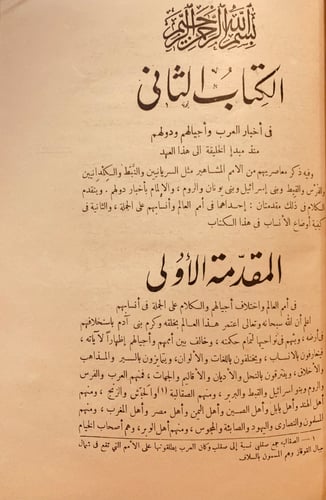 بسم الله الرحمن الرحيم
الكتاب الثانى
فى أخبار العرب وأجيالهم ودولهم
منذ مبدإ الخليقة الى هذا العهد
وفيه ذكر معاصريهم من الأمم المشاهير مثل السريانيين والنبط والكلدانيين
والفرس والقبط وبنى إسرائيل وبنى يونان والروم ، والإلمام بأخبار دولهم . ويتقدم
الكلام فى ذلك مقدمتان : إحداهما فى أمم العالم وأنسابهم على الجملة ، والثانية فى
كيفية أوضاع الأنساب فى هذا الكتاب
المقدمة الأولى
فى أمم العالم واختلاف أجيالهم والكلام على الجملة فى أنسابهم
اعلم أن الله سبحانه وتعالى اعتمر هذا العالم بخلقه وكرم بنى آدم باستخلافهم
فى أرضه ، وبثهم فى نواحيها لتمام حكمته ، وخالف بين أممهم وأجيالهم إظهاراً لآياته ،
فيتعارفون بالأنساب ، ويختلفون باللغات والألوان ، ويتمايزون بالسير والمذاهب
والأخلاق ، ويفترقون بالنحل والأديان والأقاليم والجهات ، فمنهم العرب والفرس
والروم وبنو إسرائيل والقبط والبربر ، ومنهم الصقالبة (١) والحبش والزنج ، ومنهم
أهل الهند وأهل بابل وأهل الصين وأهل اليمن وأهل مصر وأهل المغرب ، ومنهم
المسلمون والنصارى واليهود والصابئة والمجوس ، ومنهم أهل الوبر ، وهم أصحاب الخيام
١ — الصقالبة جمع صقلبى نسبة إلى صقلب وكان العرب يطلقونها على الأمم التى تقع فى شمال
جبال القوقاز وهم المسمون بالسلاف